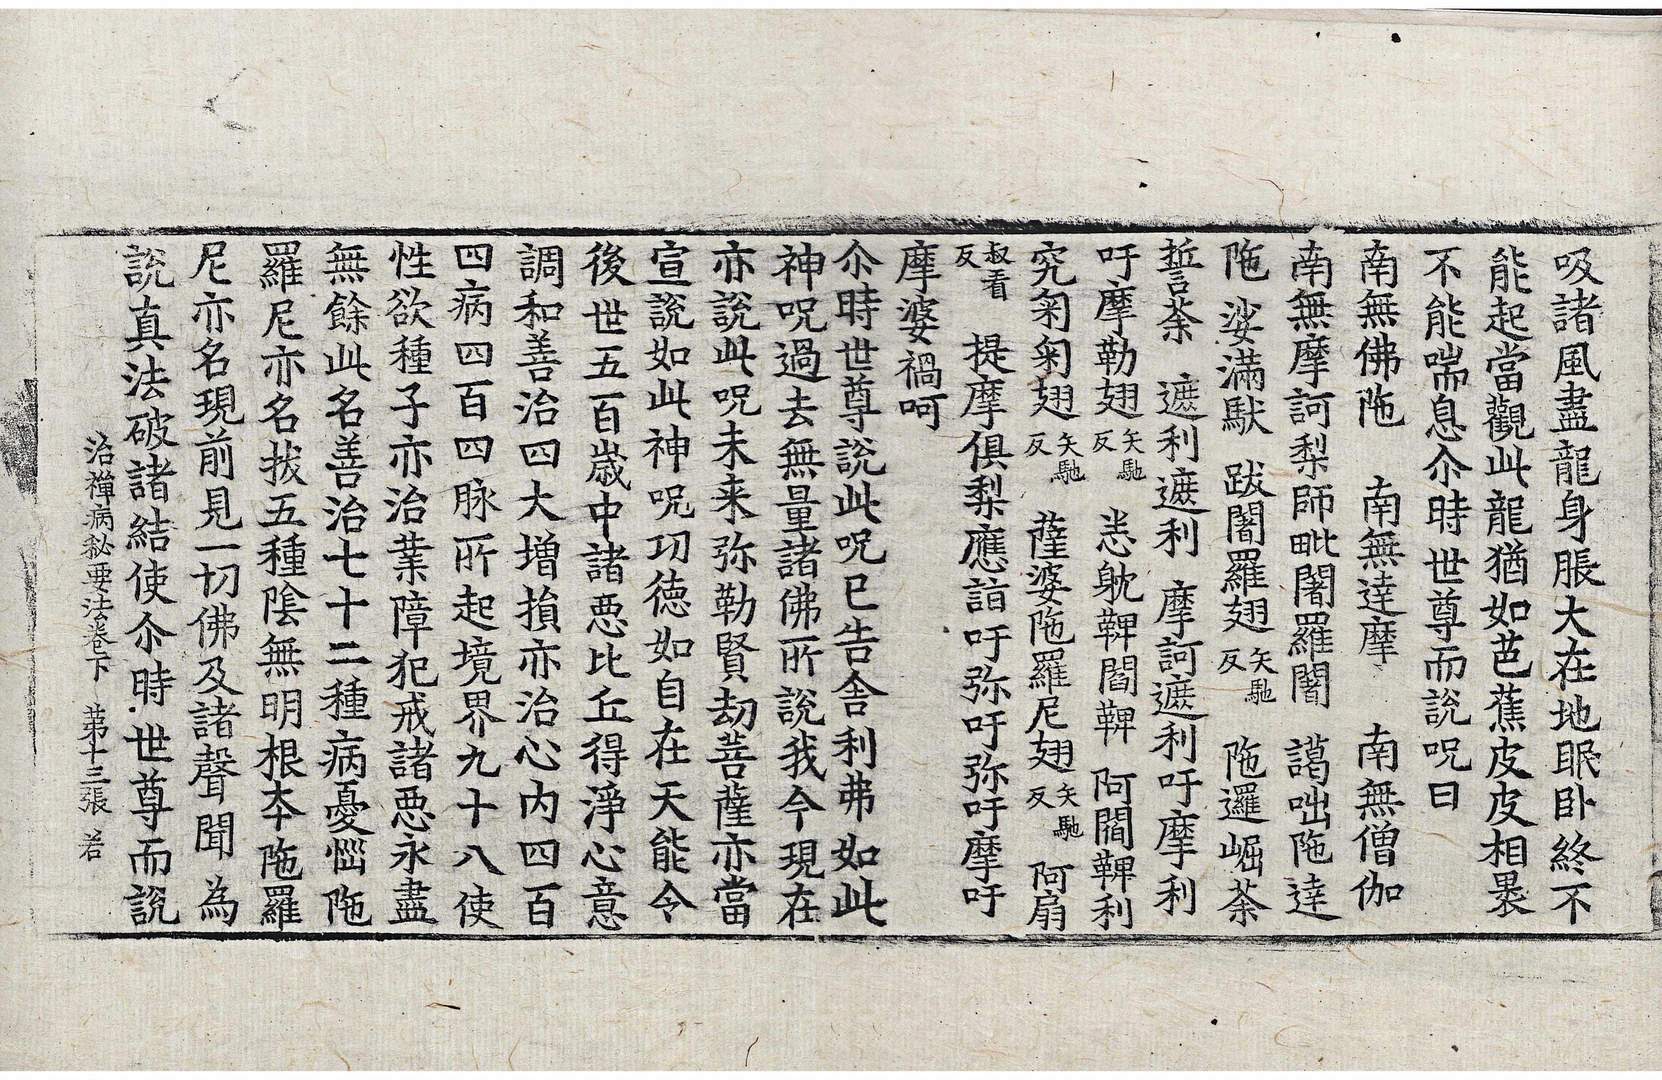 吸諸風盡龍身脹大在地眠卧終不
能起當觀此龍猶如芭蕉皮皮相褁
不能喘息尒時世尊而說呪曰
南無佛陁 南無達摩 南無僧伽
南無摩訶梨師毗闍羅闍 謁咄陁達
陁 娑滿馱 跋闍羅翅矢馳反 陁邏崛荼
誓荼 遮利遮利 摩訶遮利吁摩利
吁摩勒翅矢馳反 悉躭鞞閻鞞 阿閻鞞利
究匊匊翅矢馳反 薩婆陁羅尼翅矢馳反 阿扇
叔看反 提摩俱梨應詣吁弥吁弥吁摩吁
摩婆禍呵
尒時世尊說此呪已告舍利弗如此
神呪過去無量諸佛所說我今現在
亦說此呪未来弥勒賢劫菩薩亦當
宣說如此神呪功德如自在天能令
後世五百歲中諸惡比丘得淨心意
調和善治四大增損亦治心内四百
四病四百四脉所起境界九十八使
性欲種子亦治業障犯戒諸惡永盡
無餘此名善治七十二種病憂惱陁
羅尼亦名拔五種陰無明根本陁羅
尼亦名現前見一切佛及諸聲聞為
說真法破諸結使尒時世尊而說
治禪病秘要法卷下 第十三張 若